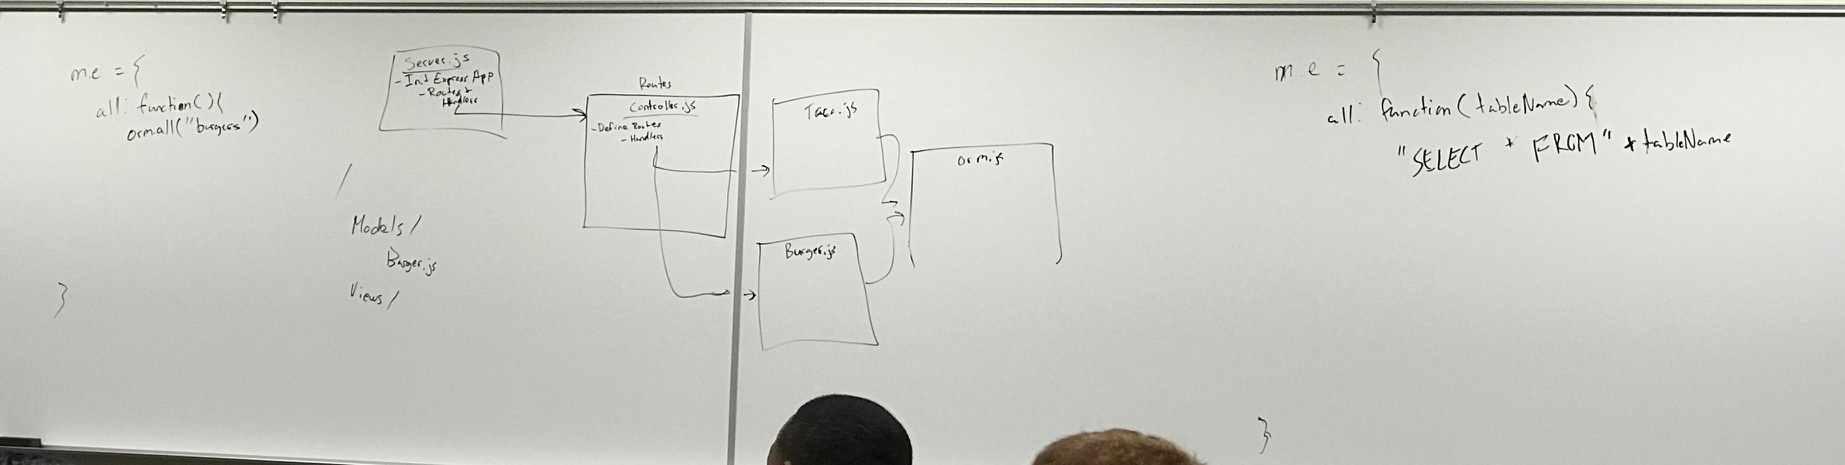 me = {
all: function(){
ormall("burgers")
}
Server.js
- Init Express App
- Routes &
Handlers
/
Models/
Burger.js
Views/
Routes
Controller.js
- Define Routes
- Handlers
Taco.js
Burger.js
orm.js
me = {
all: function(tableName){
"SELECT * FROM" + tableName
}